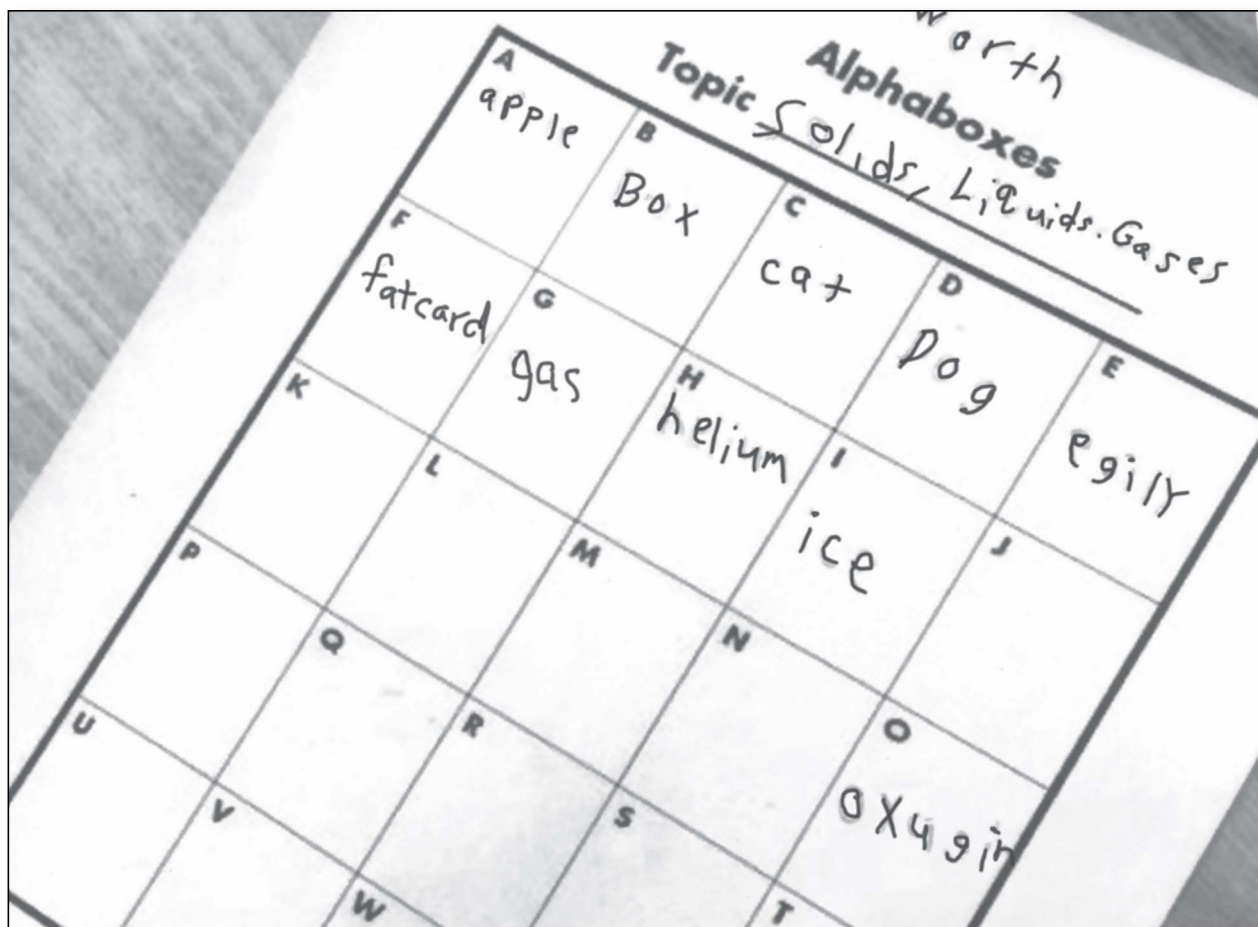 worth
Alphaboxes
Topic Solids, Liquids. Gases
A
apple
B
Box
C
cat
D
Dog
E
egilly
F
fatcard
G
gas
H
helium
I
ice
J
K
L
M
N
O
oxygin
P
Q
R
S
T
U
V
W